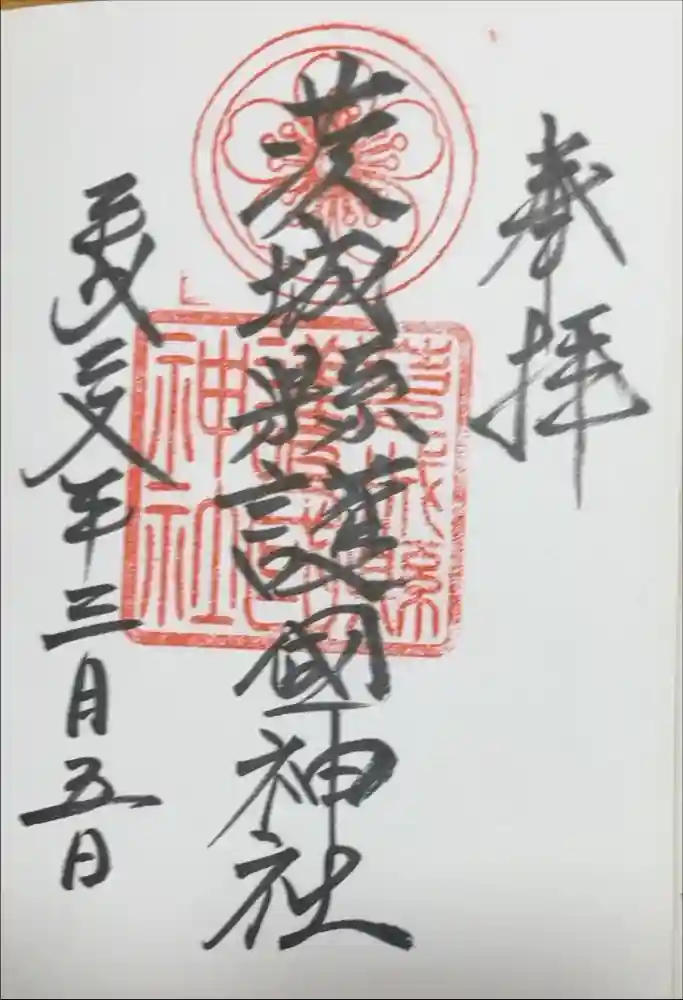 奉拝
茨城縣護國神社
平成二十八年三月五日
茨城縣
護國
神社